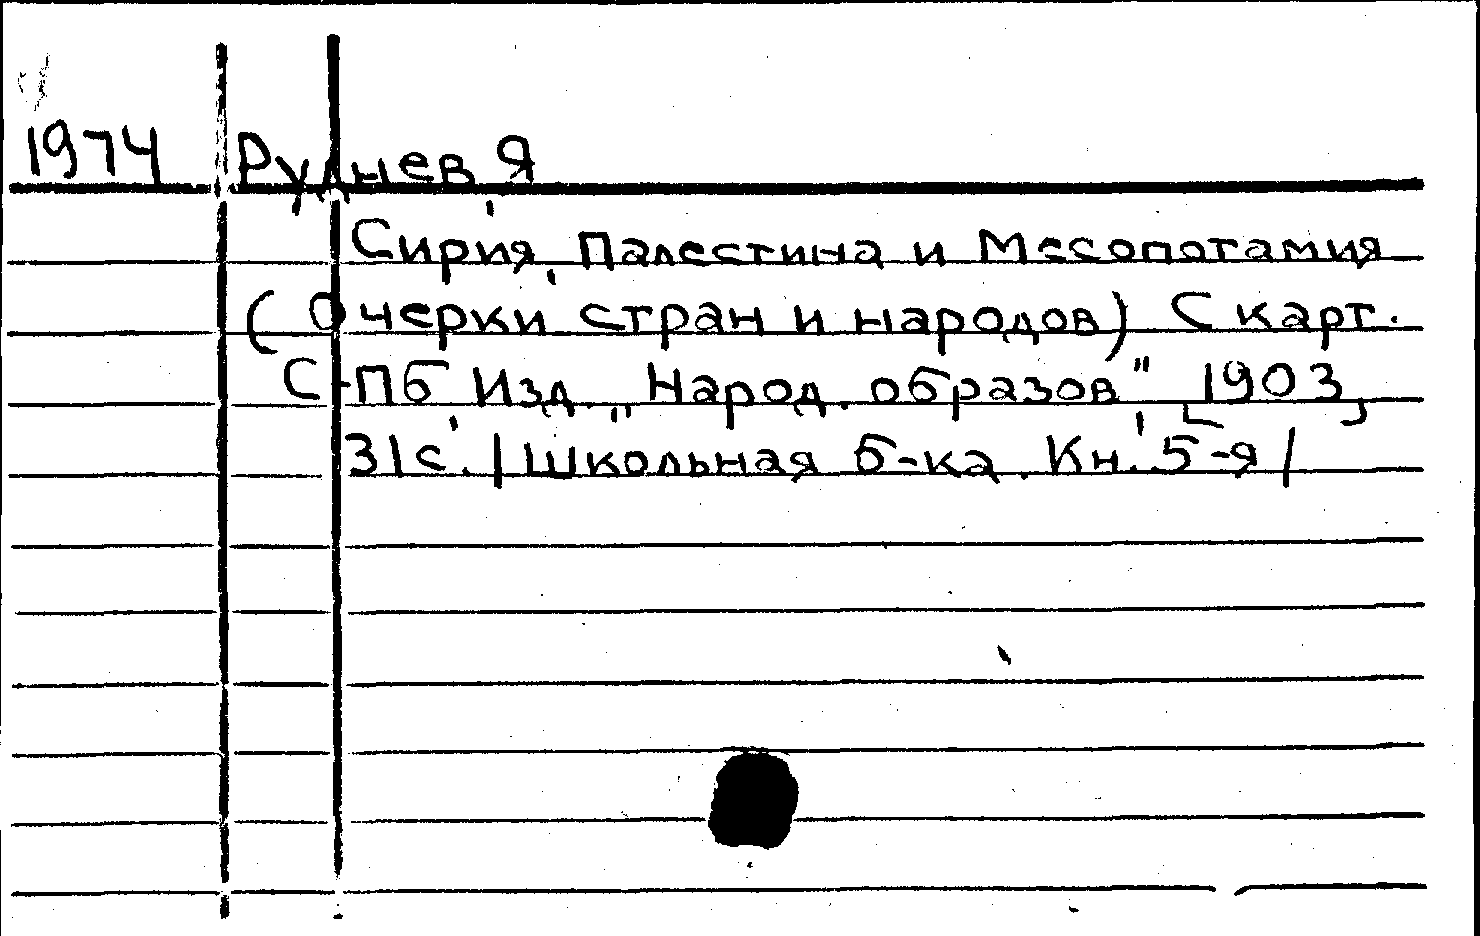 1974 Руднев, Я
Сирия, Палестина и Месопотамия
(Очерки стран и народов) С карт.
С-Пб, Изд. „Народ. образов", [1903]
31с. /Школьная б-ка. Кн. 5-я/